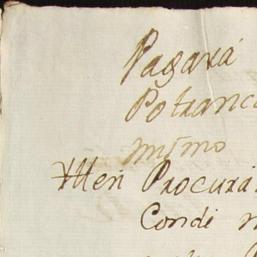 Pagará
Potranc
mismo
Item Procurá
Condi